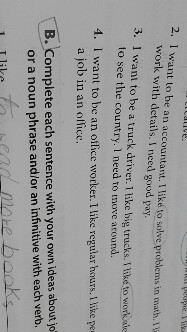 2. I want to be an accountant. I like to solve problems in math. I
work with details. I need good pay.
3. I want to be a truck driver. I like big trucks. I like to work
to see the country. I need to move around.
4. I want to be an office worker. I like regular hours. I like
a job in an office.
B. Complete each sentence with your own ideas about
or a noun phrase and/or an infinitive with each verb.
1. I like to read more books